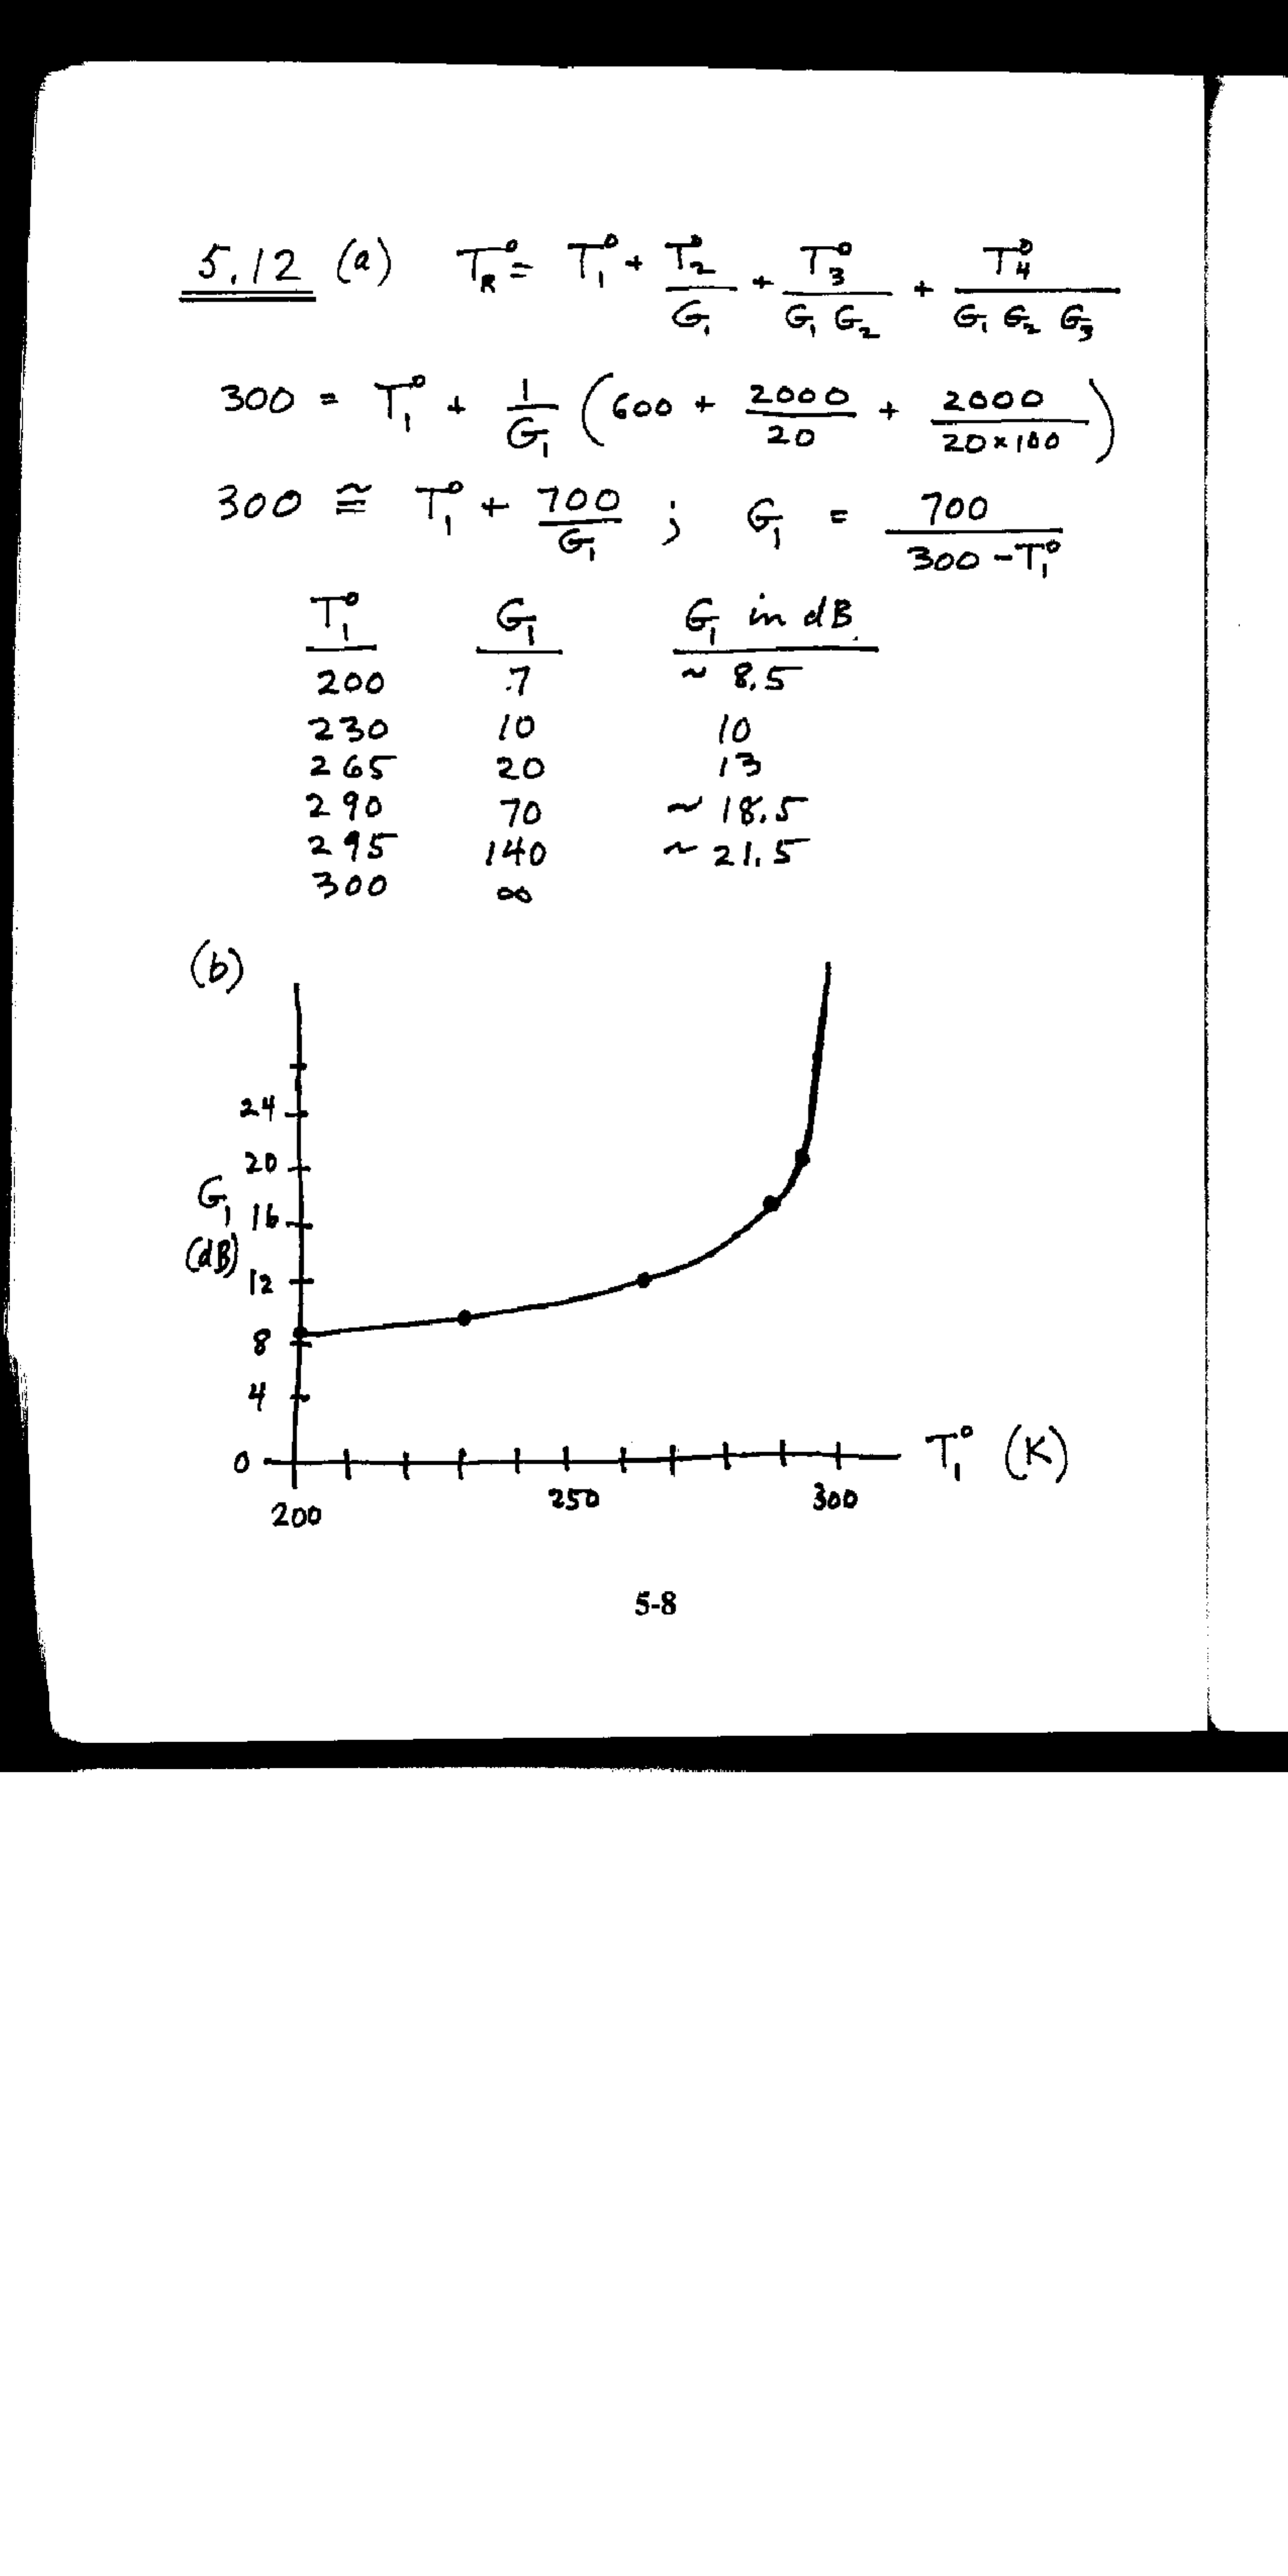 5.12 (a) T_R° = T_1° + T_2°/G_1 + T_3°/(G_1 G_2) + T_4°/(G_1 G_2 G_3)
300 = T_1° + 1/G_1 (600 + 2000/20 + 2000/(20×100))
300 ≅ T_1° + 700/G_1 ; G_1 = 700/(300 - T_1°)
T_1° G_1 G_1 in dB
200 7 ~ 8.5
230 10 10
265 20 13
290 70 ~ 18.5
295 140 ~ 21.5
300 ∞
(b)
24
20
G_1
16
(dB)
12
8
4
0
T_1° (K)
200 250 300
5-8